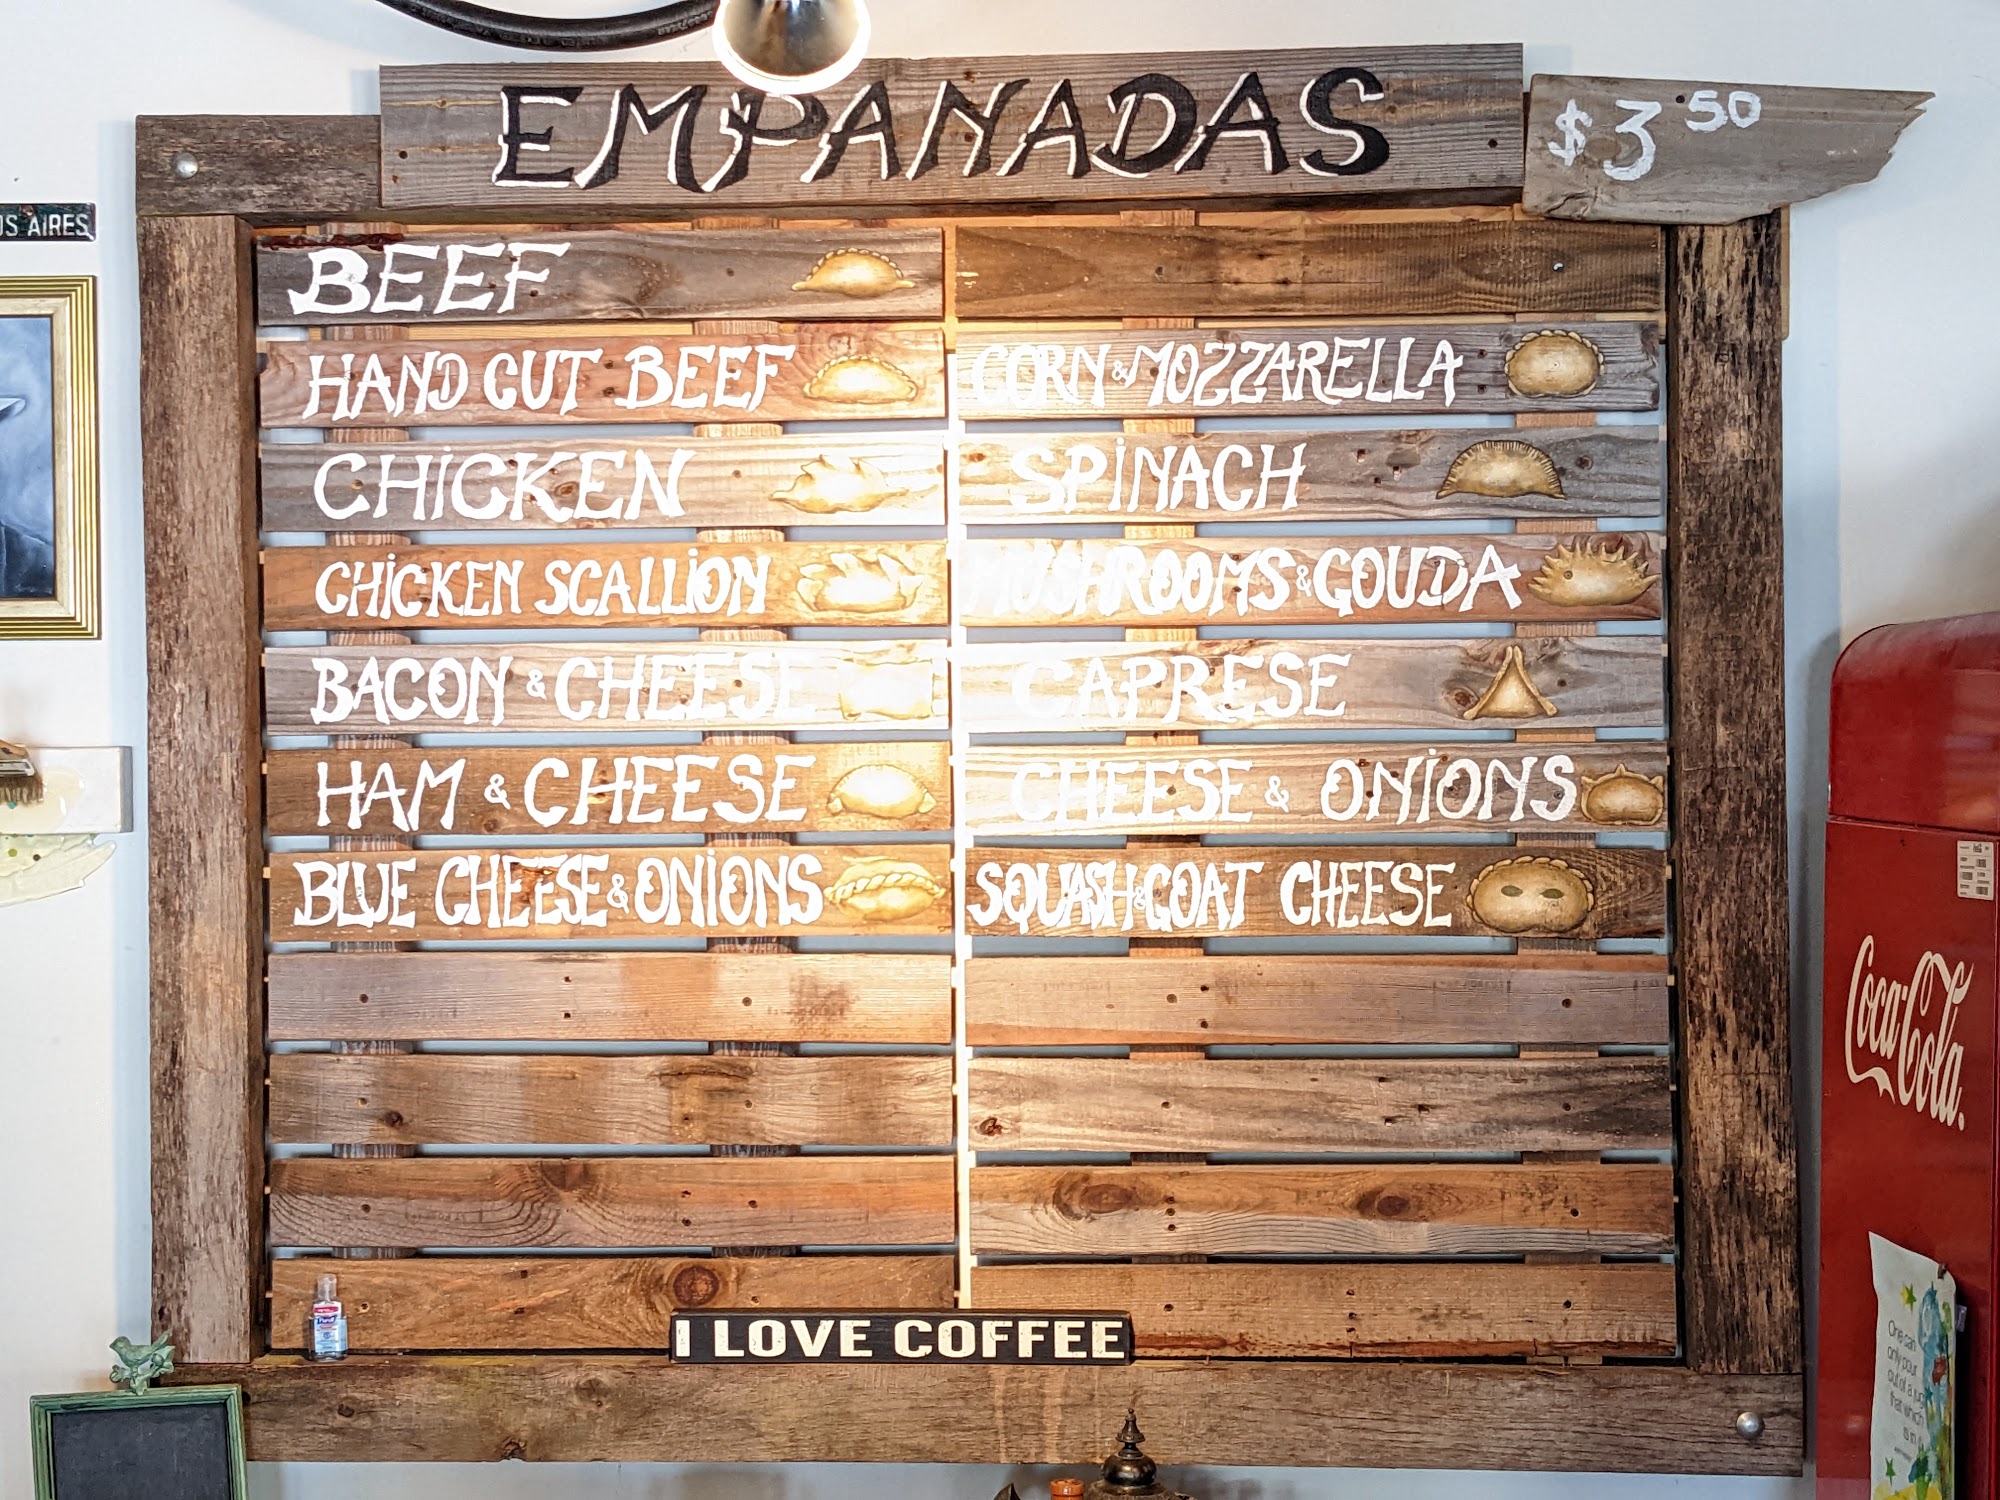 EMPANADAS
$3.50
US AIRES
BEEF
HAND CUT BEEF
CHICKEN
CHICKEN SCALLION
BACON & CHEESE
HAM & CHEESE
BLUE CHEESE & ONIONS
CORN & MOZZARELLA
SPINACH
MUSHROOMS & GOUDA
CAPRESE
CHEESE & ONIONS
SQUASH & GOAT CHEESE
I LOVE COFFEE
Purell
Coca-Cola
One can
only pour
out of a jug
that which
is in it